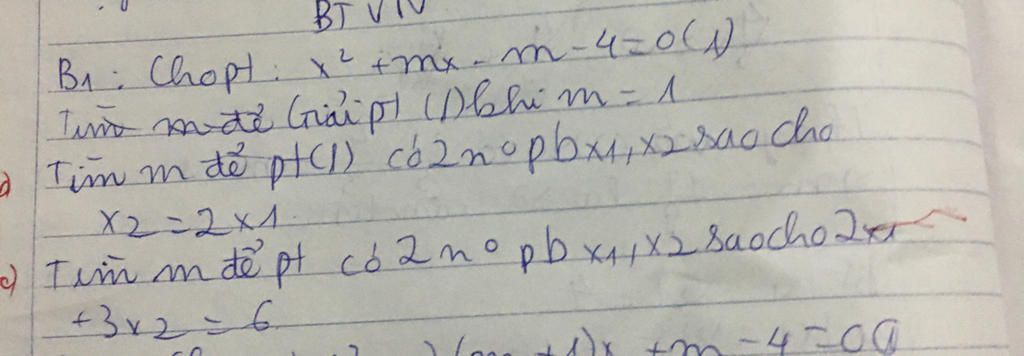 BTVN
B1: Cho pt: x² + mx - m - 4 = 0 (1)
Tìm m để Giải pt (1) khi m = 1
Tìm m để pt (1) có 2 no pb x1, x2 sao cho
x2 = 2x1.
c) Tìm m để pt có 2 no pb x1, x2 sao cho 2x1
+3x2 = 6
+1)x + m - 4 = 0 (1